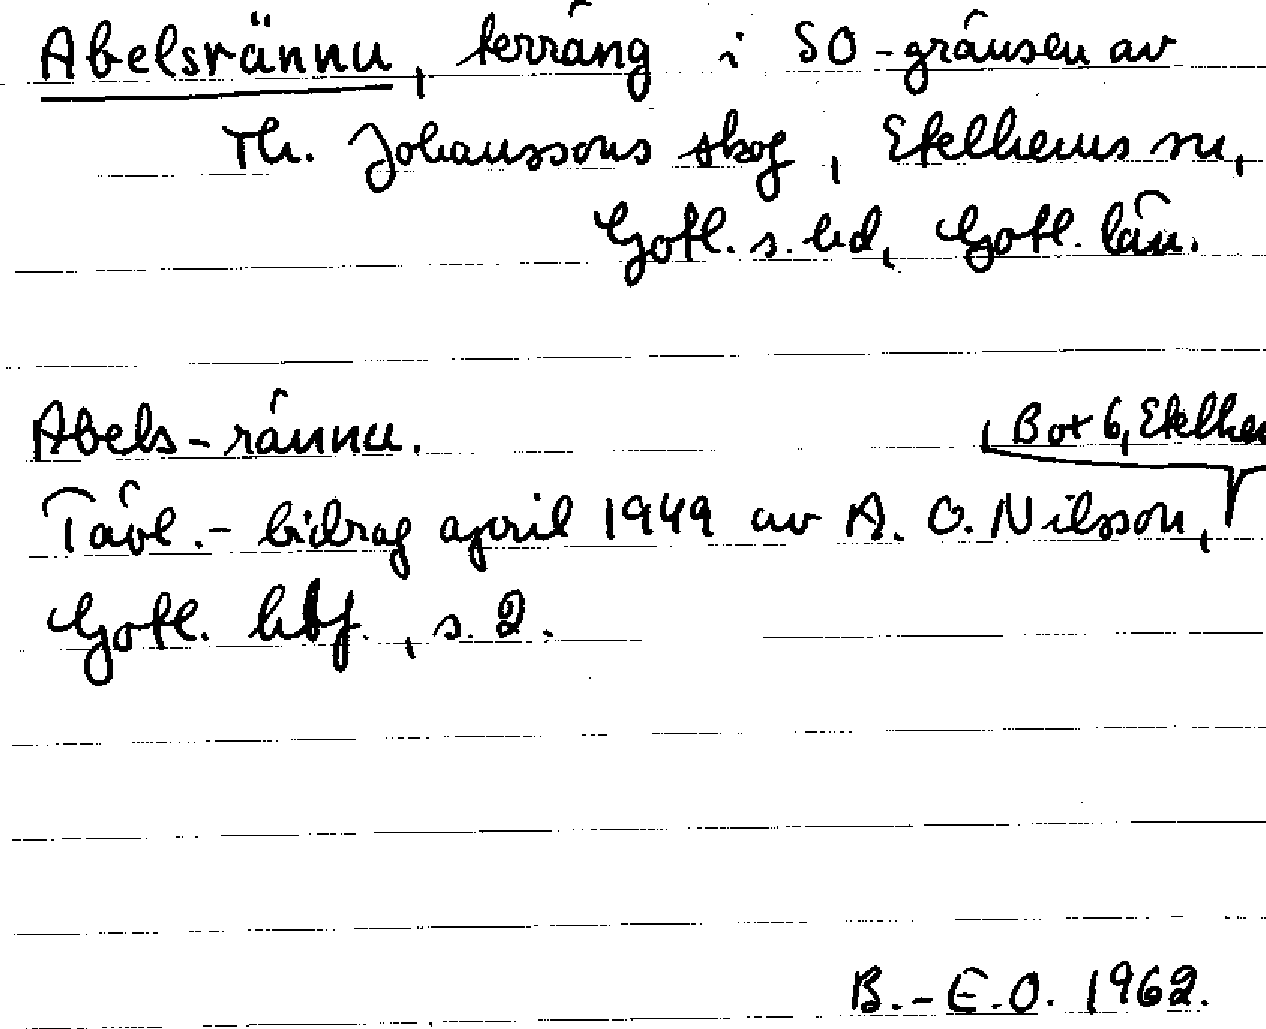 Abelsrännu, terräng i SO-gränsen av
Th. Johanssons skog, Etelhems sn,
Gotl. s. hd, Gotl. län.
Abels-rännu.
Box 6, Etelhe
Tävl.- bidrag april 1949 av A. O. Nilsson,
Gotl. hbf., s. 2.
B.-E.O. 1962.